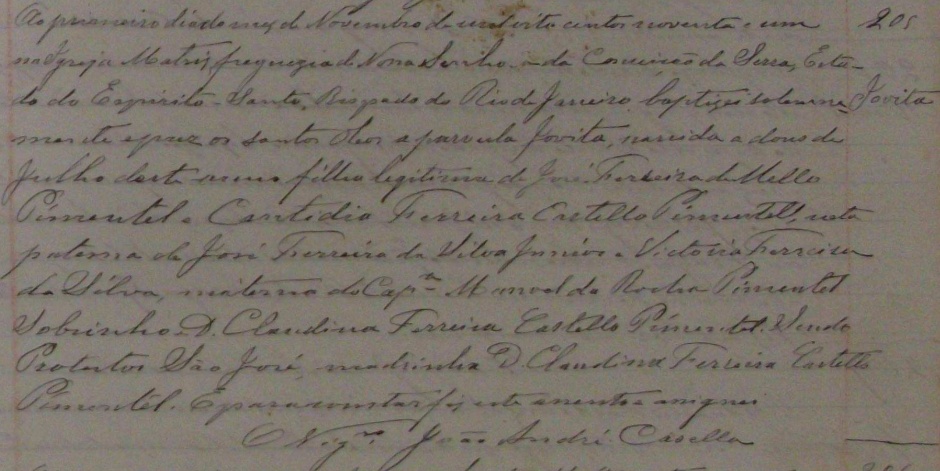 Ao primeiro dia do mez de Novembro de mil oito centos noventa e um 205
na Igreja Matriz, freguezia de Nossa Senhora da Conceição da Serra, Esta-
do do Espirito-Santo, Bispado do Rio de Janeiro baptizei solemne- Jovita
mente e puz os santos oleos a parvula Jovita, nascida a dous de
Julho deste anno filha legitima de José Ferreira de Mello
Pimentel e Cantidia Ferreira Castello Pimentel, neta
paterna de José Ferreira da Silva Junior e Victoria Ferreira
da Silva, materna do Capm Manoel da Rocha Pimentel
Sobrinho e D. Claudina Ferreira Castello Pimentel. Sendo
Protector São José, madrinha D. Claudina Ferreira Castello
Pimentel. E para constar fiz este assento e assignei
O Vigro João André Casella